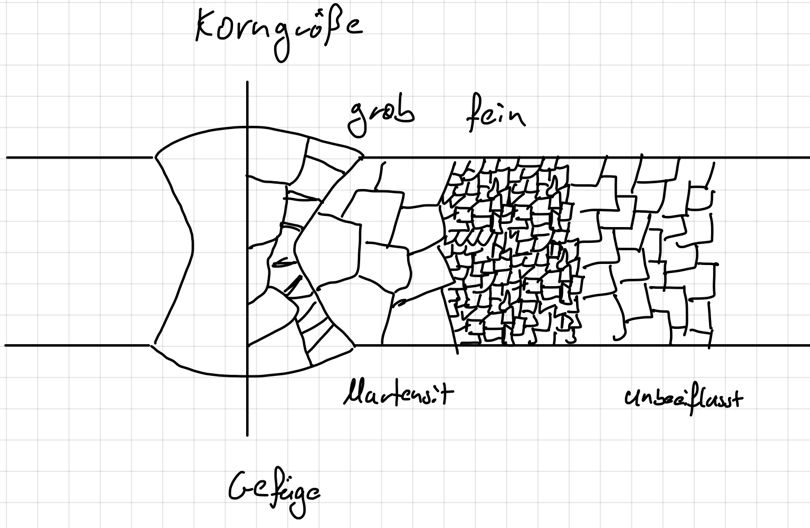 Korngröße
grob fein
Martensit
unbeeiflusst
Gefüge